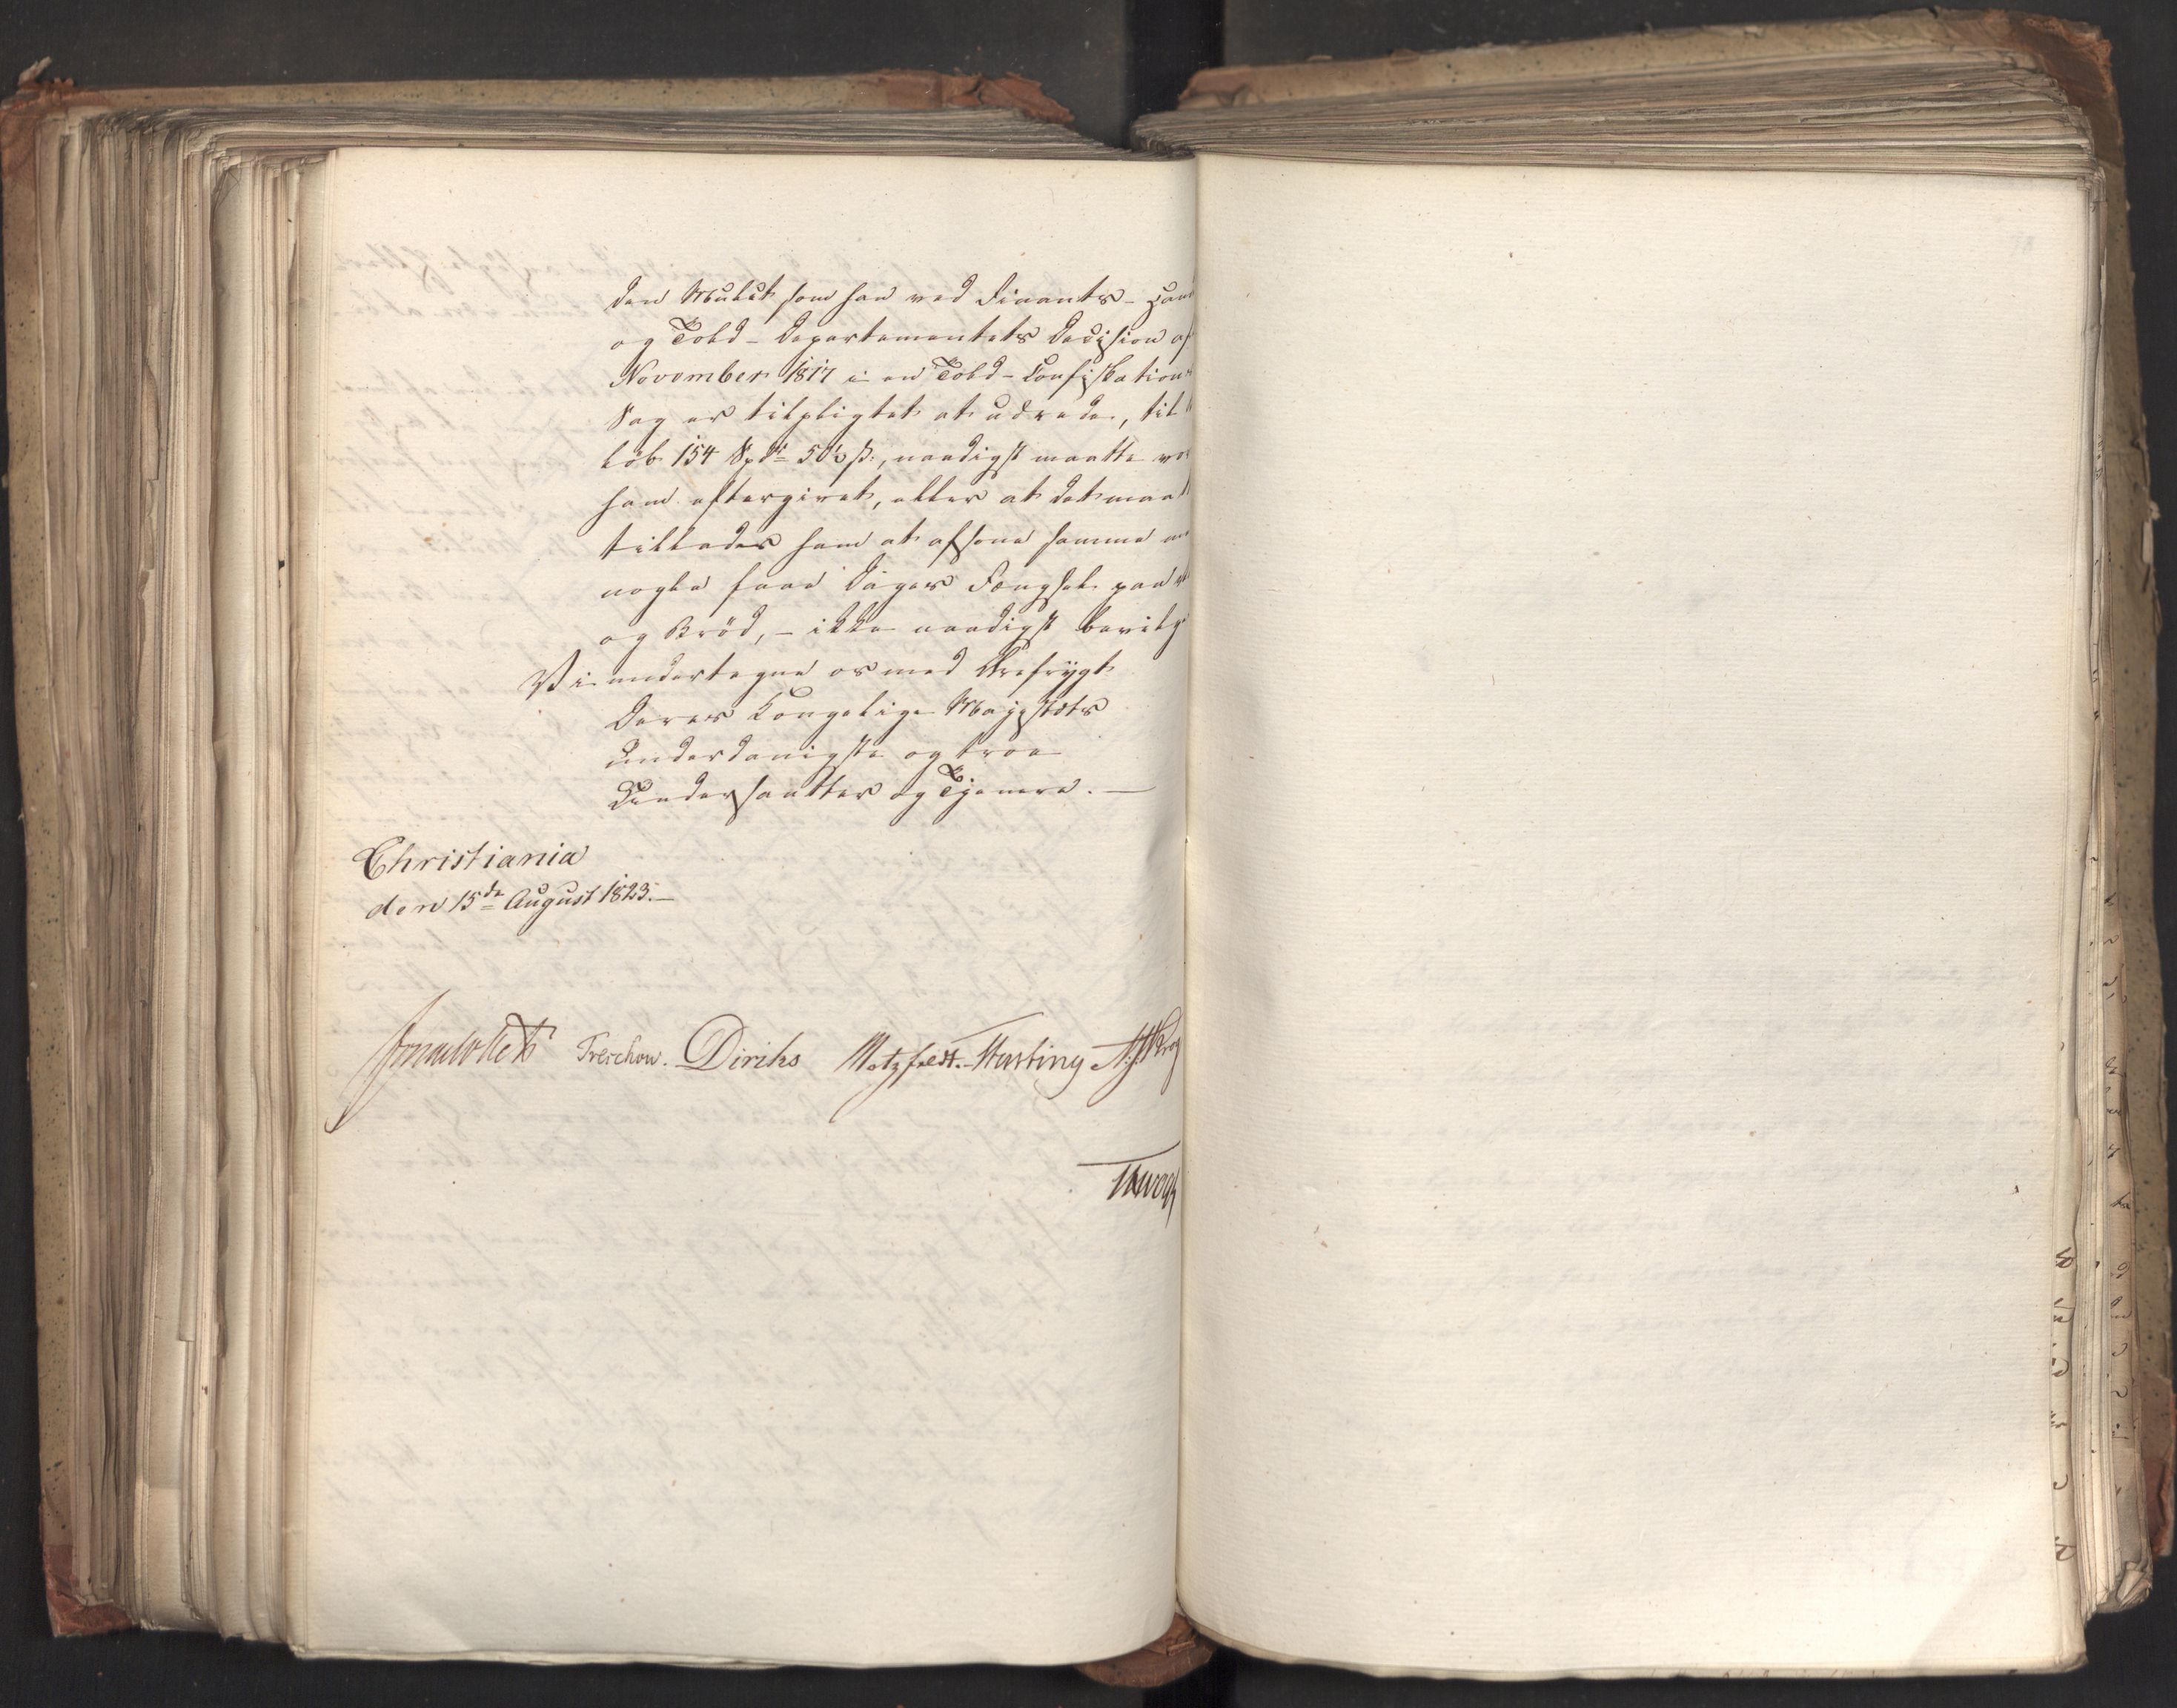 den Mulct, som han ved Finants-Han
og Told-Departementets Decision af
November 1817 i en Told-Confiskations
Sag er tilpligtet at udrede, til
Löb 154 Spd. ß., naadigst maatte
ham eftergivet, eller at det maa
tillades ham at afsone samme
nogle faae Dages Fængsel paa
og Bröd, - ikke naadigst bevilg
Vi undertegne os med Ærefrygt
Deres Kongelige Majestets
underdanigste og troe
Undersaatter og Tjenere. —
Christiania
den 15de August 1823. —
Treschow. Diriks Motzfeldt. Fasting